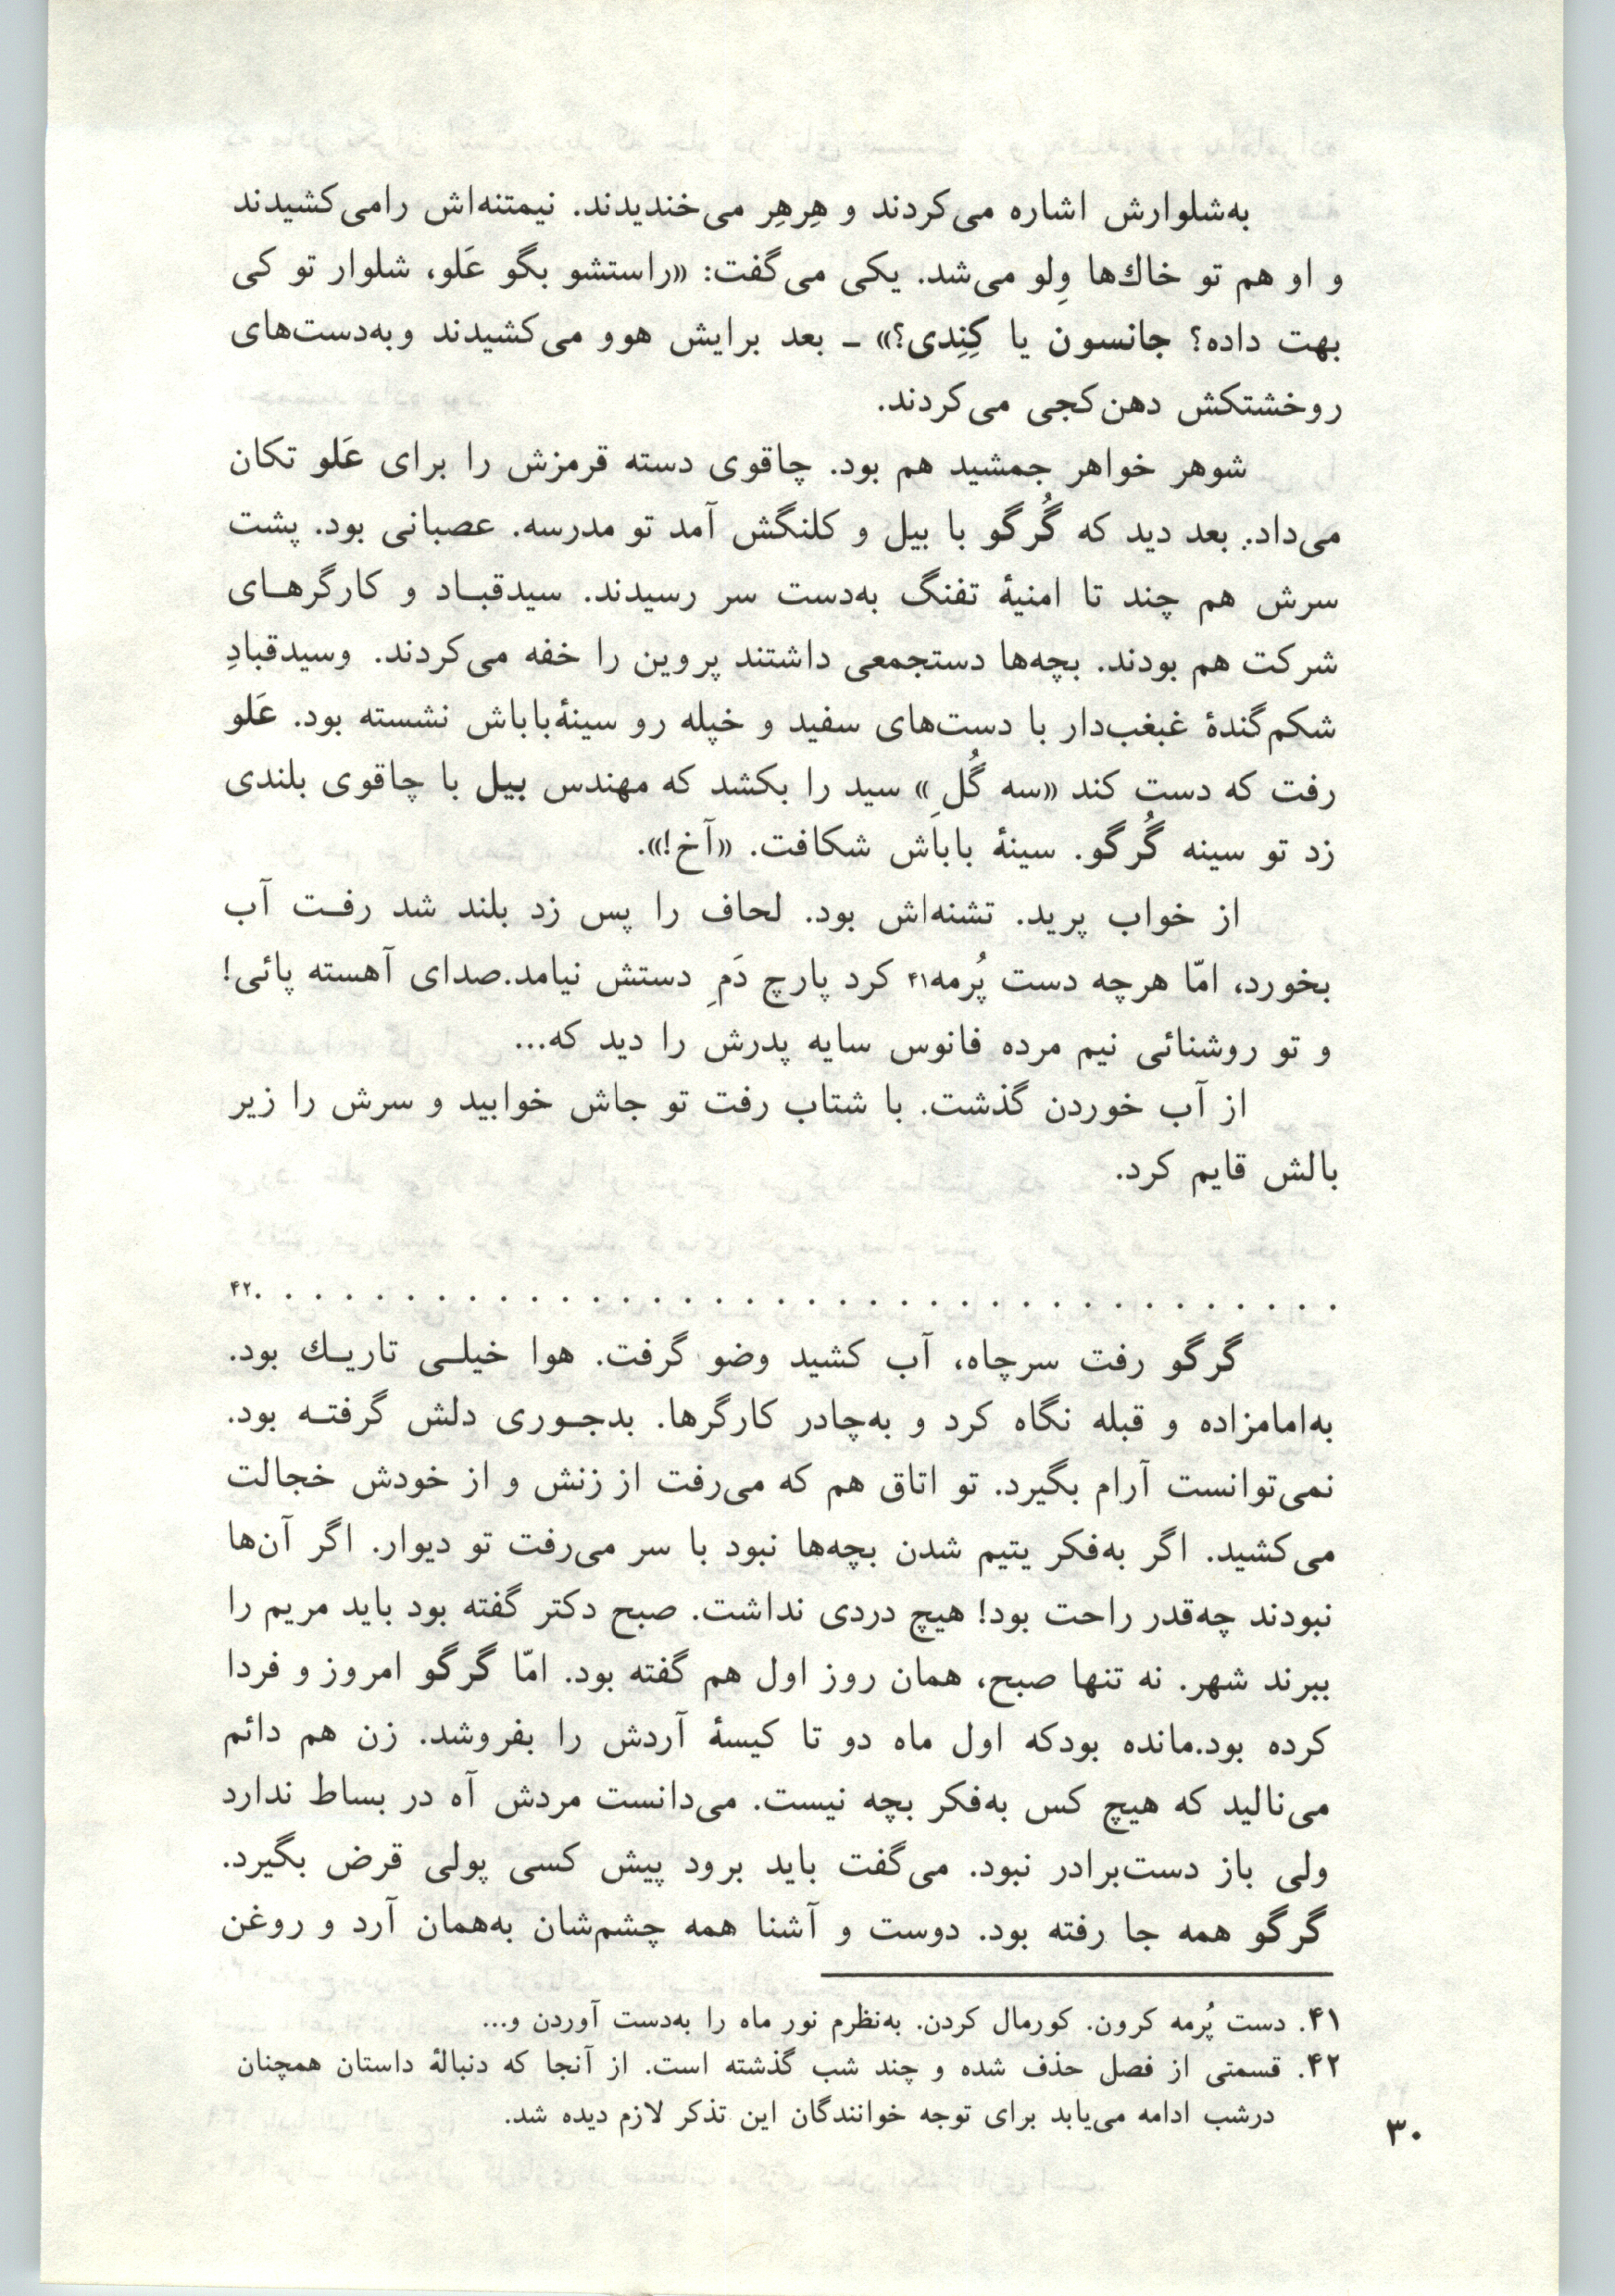 به‌شلوارش اشاره می‌کردند و هِرهِر می‌خندیدند. نیمتنه‌اش رامی‌کشیدند
و او هم تو خاك‌ها وِلو می‌شد. یکی می‌گفت: «راستشو بگو عَلو، شلوار تو کی
بهت داده؟ جانسون یا کِنِدی؟» ـ بعد برایش هوو می‌کشیدند وبه‌دست‌های
روخشتکش دهن‌کجی می‌کردند.
شوهر خواهر جمشید هم بود. چاقوی دسته قرمزش را برای عَلو تکان
می‌داد. بعد دید که گُرگو با بیل و کلنگش آمد تو مدرسه. عصبانی بود. پشت
سرش هم چند تا امنیهٔ تفنگ به‌دست سر رسیدند. سیدقبـاد و کارگرهـای
شرکت هم بودند. بچه‌ها دستجمعی داشتند پروین را خفه می‌کردند. وسیدقبادِ
شکم‌گندهٔ غبغب‌دار با دست‌های سفید و خپله رو سینهٔ‌باباش نشسته بود. عَلو
رفت که دست کند «سه گُلِ» سید را بکشد که مهندس بیل با چاقوی بلندی
زد تو سینه گُرگو. سینهٔ باباش شکافت. «آخ!».
از خواب پرید. تشنه‌اش بود. لحاف را پس زد بلند شد رفـت آب
بخورد، امّا هرچه دست پُرمه۴۱ کرد پارچ دَمِ دستش نیامد.صدای آهسته پائی!
و تو روشنائی نیم مرده فانوس سایه پدرش را دید که...
از آب خوردن گذشت. با شتاب رفت تو جاش خوابید و سرش را زیر
بالش قایم کرد.
. . . . . . . . . . . . . . . . . . . . . . . . . . . . . . . . . . . .۴۲
گرگو رفت سرچاه، آب کشید وضو گرفت. هوا خیلـی تاریـك بود.
به‌امامزاده و قبله نگاه کرد و به‌چادر کارگرها. بدجـوری دلش گرفتـه بود.
نمی‌توانست آرام بگیرد. تو اتاق هم که می‌رفت از زنش و از خودش خجالت
می‌کشید. اگر به‌فکر یتیم شدن بچه‌ها نبود با سر می‌رفت تو دیوار. اگر آن‌ها
نبودند چه‌قدر راحت بود! هیچ دردی نداشت. صبح دکتر گفته بود باید مریم را
ببرند شهر. نه تنها صبح، همان روز اول هم گفته بود. امّا گرگو امروز و فردا
کرده بود.مانده بودکه اول ماه دو تا کیسهٔ آردش را بفروشد. زن هم دائم
می‌نالید که هیچ کس به‌فکر بچه نیست. می‌دانست مردش آه در بساط ندارد
ولی باز دست‌برادر نبود. می‌گفت باید برود پیش کسی پولی قرض بگیرد.
گرگو همه جا رفته بود. دوست و آشنا همه چشم‌شان به‌همان آرد و روغن
۴۱. دست پُرمه کرون. کورمال کردن. به‌نظرم نور ماه را به‌دست آوردن و...
۴۲. قسمتی از فصل حذف شده و چند شب گذشته است. از آنجا که دنبالهٔ داستان همچنان
درشب ادامه می‌یابد برای توجه خوانندگان این تذکر لازم دیده شد.
۳۰